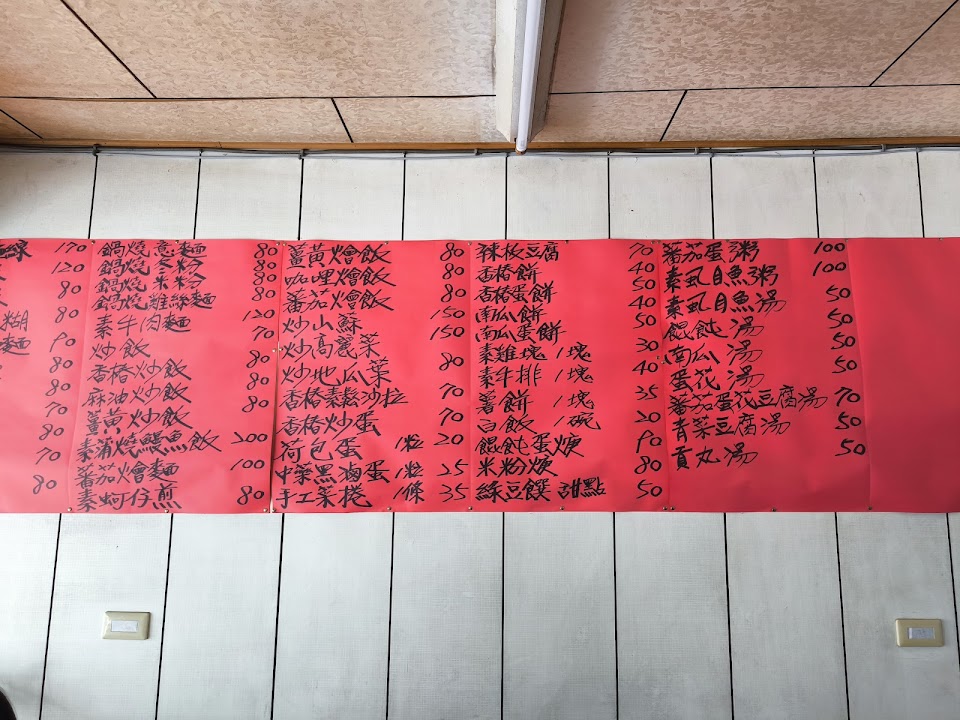 線 170
120
80
糊 80
麵 90
80
80
70
80
70
80
鍋燒意麵 80
鍋燒冬粉 80
鍋燒米粉 80
鍋燒雞絲麵 80
素牛肉麵 120
炒飯 70
香椿炒飯 80
麻油炒飯 80
薑黃炒飯 80
素蒲燒鰻魚飯 200
蕃茄燴麵 100
素蚵仔煎 80
薑黃燴飯 80
咖哩燴飯 80
蕃茄燴飯 80
炒山蘇 150
炒高麗菜 150
炒地瓜菜 80
香椿素鬆沙拉 70
香椿炒蛋 70
荷包蛋 1粒 20
中藥黑滷蛋 1粒 25
手工菜捲 1條 35
辣板豆腐 70
香椿餅 40
香椿蛋餅 50
南瓜餅 40
南瓜蛋餅 50
素雞塊 1塊 30
素牛排 1塊 40
薯餅 1塊 35
白飯 1碗 20
餛飩蛋焿 90
米粉焿 80
綠豆饌 甜點 50
蕃茄蛋粥 100
素虱目魚粥 100
素虱目魚湯 50
餛飩湯 50
南瓜湯 50
蛋花湯 50
蕃茄蛋花豆腐湯 70
青菜豆腐湯 50
貢丸湯 50